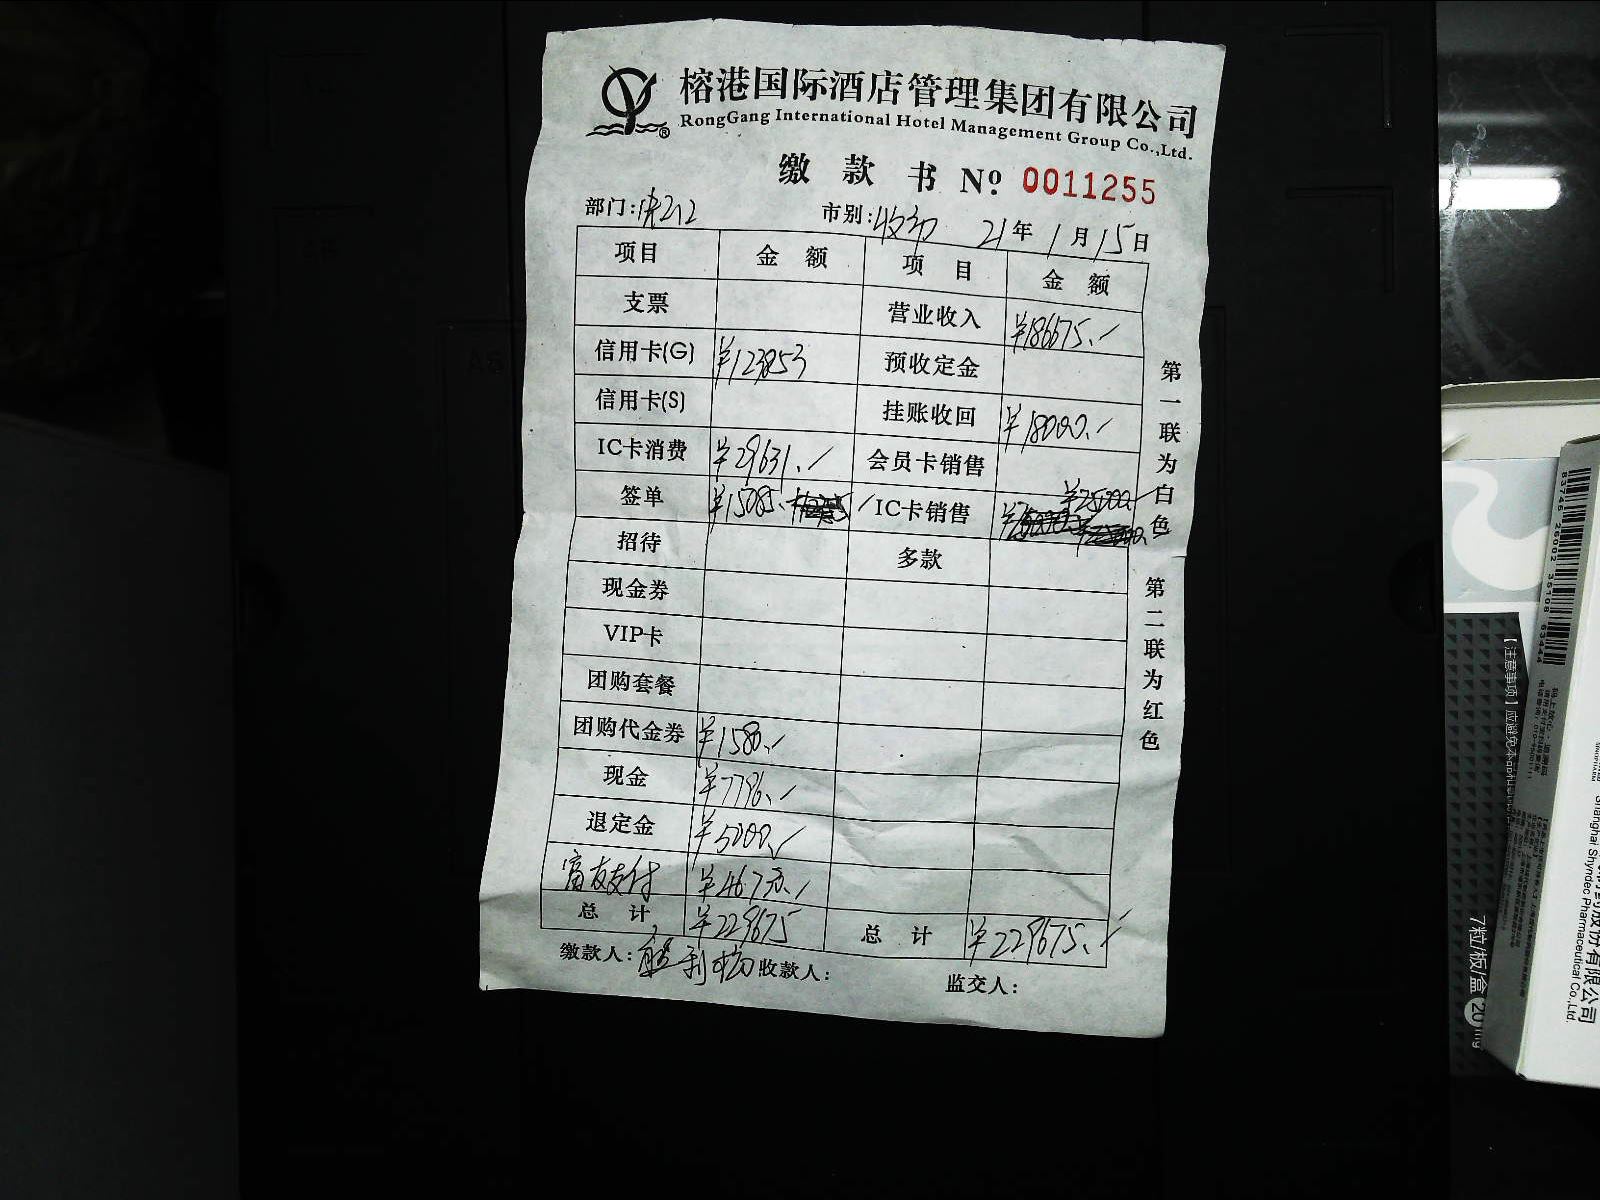 榕港国际酒店管理集团有限公司
RongGang International Hotel Management Group Co.,Ltd.
缴款书 No. 0011255
部门: 市别: 21年1月15日
项目 金额 项目 金额
支票 营业收入 ¥186675.-
信用卡(G) ¥123853 预收定金
信用卡(S) 挂账收回 ¥18000.-
IC卡消费 ¥29631.- 会员卡销售
签单 ¥15085.- IC卡销售 ¥25000.-
招待 多款
现金券
VIP卡
团购套餐
团购代金券 ¥1580.-
现金 ¥7796.-
退定金 ¥5000.-
富友支付
总计 ¥229675 总计 ¥229675.-
缴款人: 收款人: 监交人:
第一联为白色
第二联为红色
83746 26002 35108 63446
【注意事项】
7粒/板/盒
20mg
Shanghai Shyndec Pharmaceutical Co.,Ltd.